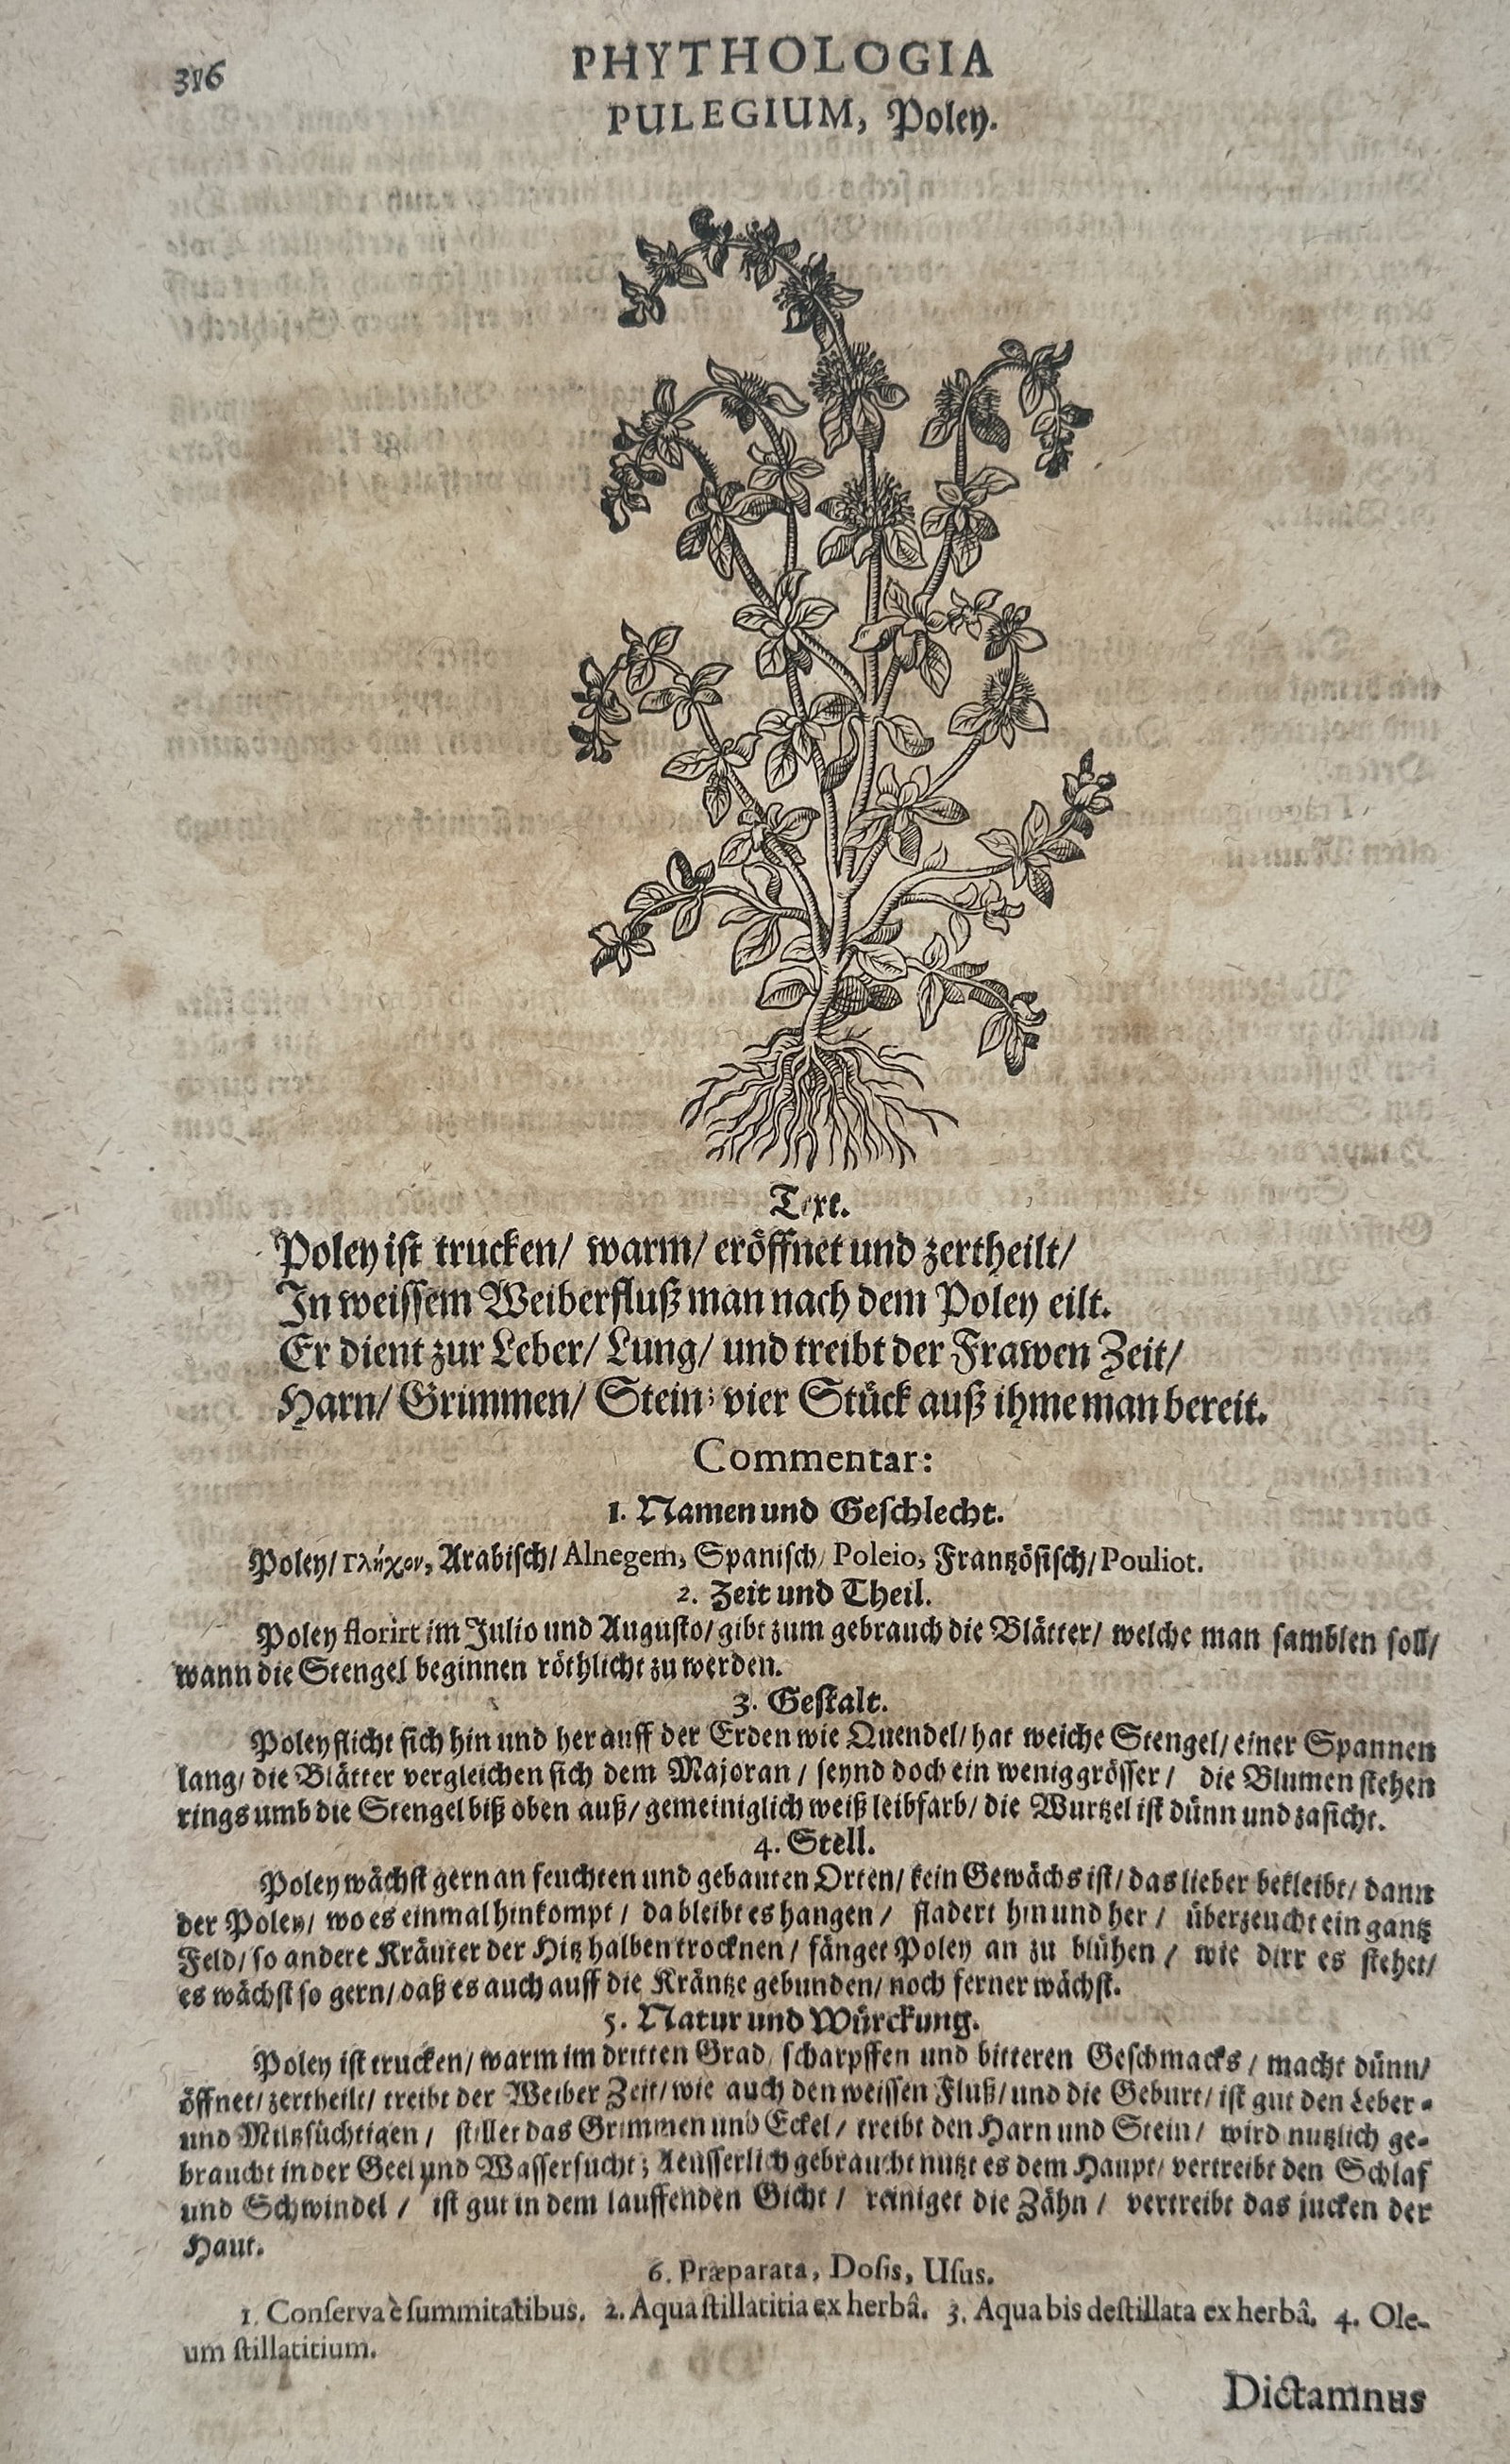 316
PHYTHOLOGIA
PULEGIUM, Poley.
Text.
Poley ist trucken/ warm/ eröffnet und zertheilt/
In weissem Weiberfluß man nach dem Poley eilt.
Er dient zur Leber/ Lung/ und treibt der Frawen Zeit/
Harn/ Grimmen/ Stein; vier Stück auß ihme man bereit.
Commentar:
1. Namen und Geschlecht.
Poley/ γλήχον, Arabisch/ Alnegem, Spanisch/ Poleio, Frantzösisch/ Pouliot.
2. Zeit und Theil.
Poley florirt im Julio und Augusto/ gibt zum gebrauch die Blätter/ welche man samblen soll/
wann die Stengel beginnen röthlicht zu werden.
3. Gestalt.
Poley flicht sich hin und her auff der Erden wie Quendel/ hat weiche Stengel/ einer Spannen
lang/ die Blätter vergleichen sich dem Majoran/ seynd doch ein wenig grösser/ die Blumen stehen
rings umb die Stengel biß oben auß/ gemeiniglich weiß leibfarb/ die Wurtzel ist dünn und zasicht.
4. Stell.
Poley wächst gern an feuchten und gebauten Orten/ kein Gewächs ist/ das lieber bekleibt/ dann
der Poley/ wo es einmal hinkompt/ da bleibt es hangen/ fladert hin und her/ überzeucht ein gantz
Feld/ so andere Kräuter der Hitz halben trocknen/ fänget Poley an zu blühen/ wie dirr es stehet/
es wächst so gern/ daß es auch auff die Kräntze gebunden/ noch ferner wächst.
5. Natur und Würckung.
Poley ist trucken/ warm im dritten Grad/ scharpffen und bitteren Geschmacks/ macht dünn/
öffnet/ zertheilt/ treibt der Weiber Zeit/ wie auch den weissen Fluß/ und die Geburt/ ist gut den Leber-
und Miltzsüchtigen/ stillet das Grimmen und Eckel/ treibt den Harn und Stein/ wird nutzlich ge-
braucht in der Geel und Wassersucht; Aeusserlich gebraucht nutzt es dem Haupt/ vertreibt den Schlaf
und Schwindel/ ist gut in dem lauffenden Gicht/ reiniget die Zähn/ vertreibt das jucken der
Haut.
6. Præparata, Dosis, Usus.
1. Conserva è summitatibus. 2. Aqua stillatitia ex herbâ. 3. Aqua bis destillata ex herbâ. 4. Ole-
um stillatitium.
Dictamnus